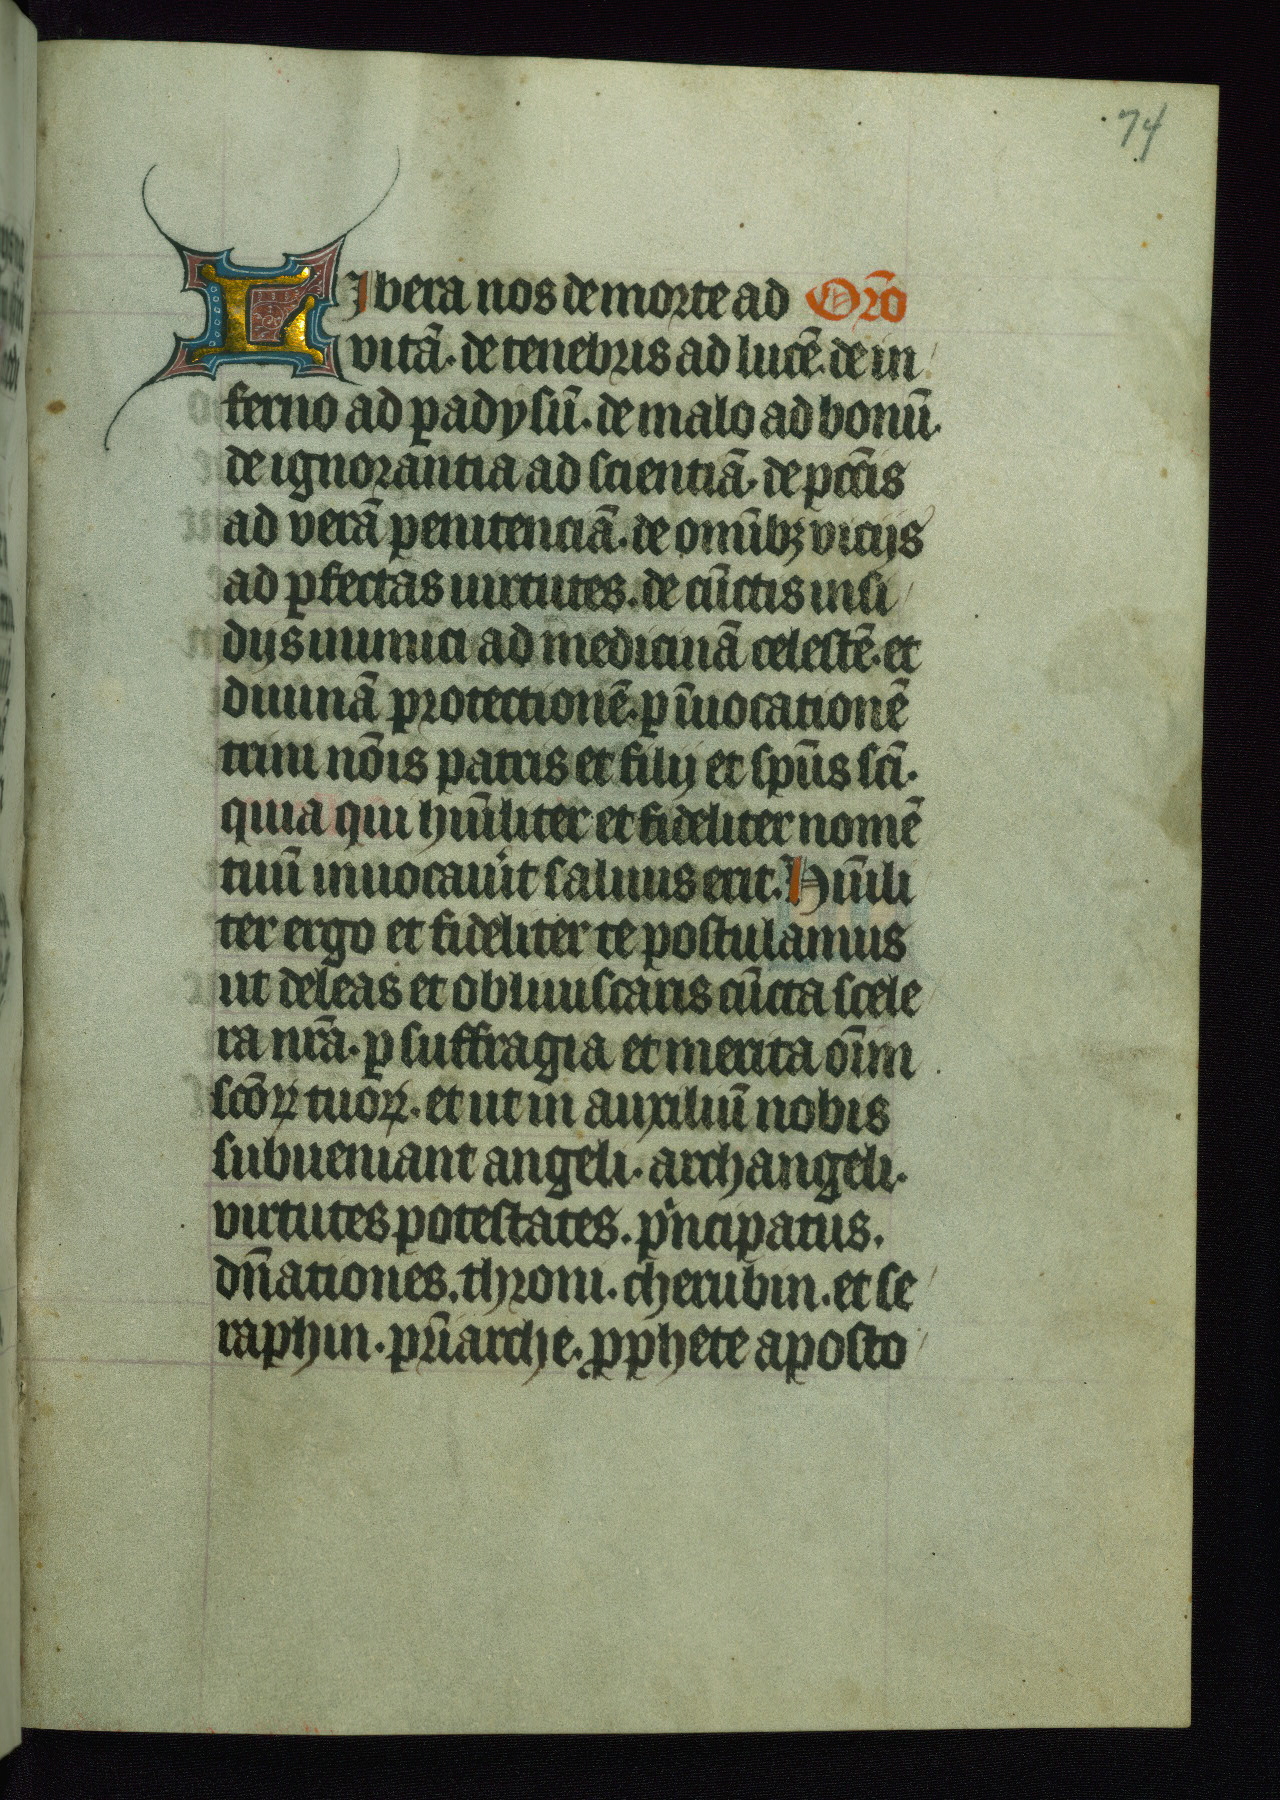 74
LIbera nos de morte ad Orō
vitā. de tenebris ad lucē. de in
ferno ad padysū. de malo ad bonū.
de ignorantia ad scientiā. de pctīs
ad verā penitenciā. de omībꝫ vicijs
ad pfectas uirtutes. de cūctis insi
dijs inimici ad medicinā celestē. et
diuinā protectionē. p īuocationē
trini nōis patris et filij et spūs scī.
quia qui hūiliter et fideliter nomē
tuū inuocauit saluus erit. Hūili
ter ergo et fideliter te postulamus
ut deleas et obliuiscaris cūcta scele
ra nrā. p suffragia et merita oīm
scōꝝ tuoꝝ. et ut in auxiliū nobis
subueniant angeli. archangeli.
virtutes potestates. pⁱncipatus.
dn̄ationes. throni. cherubin. et se
raphin. pr̄iarche. ꝓphete aposto